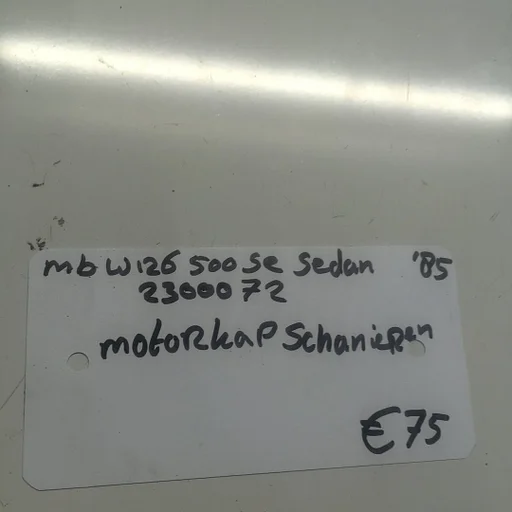 mb W126 500 SE Sedan '85
2300072
motorkap Schanieren
€75